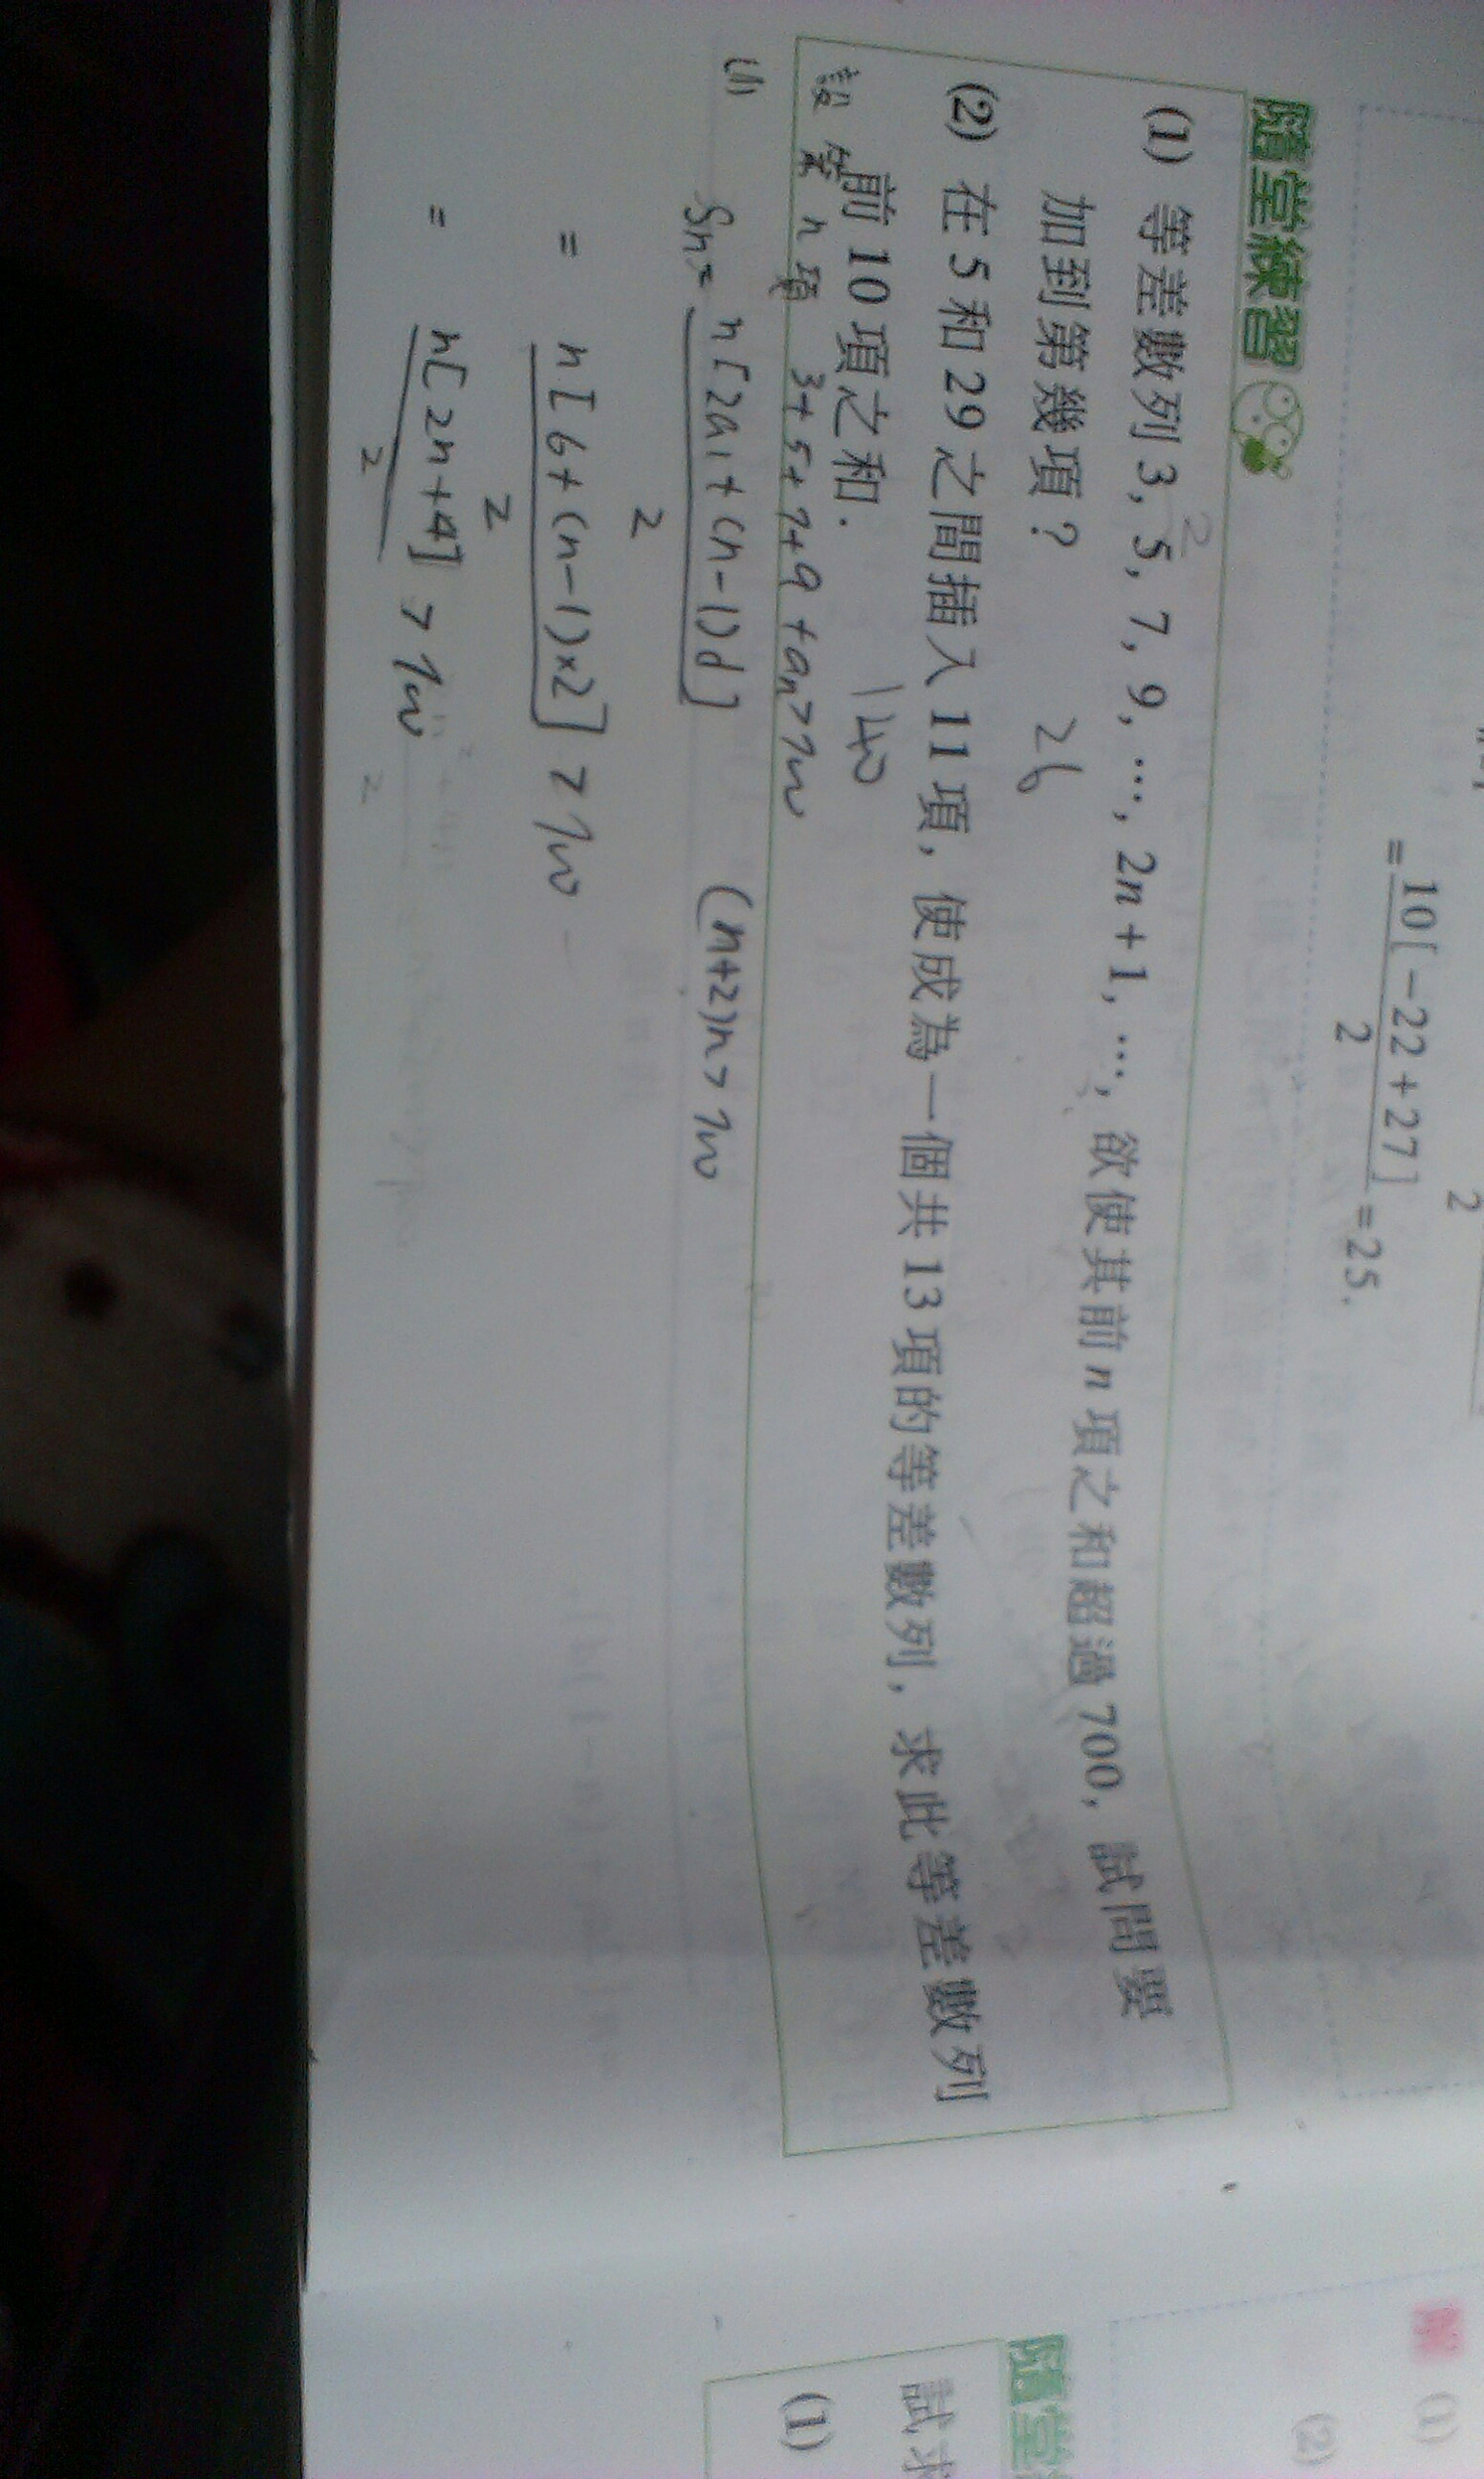 2
=10[-22+27]/2=25.
隨堂練習
(1) 等差數列 3, 5, 7, 9, …, 2n+1, …, 欲使其前 n 項之和超過 700, 試問要
2
加到第幾項?
26
(2) 在 5 和 29 之間插入 11 項, 使成為一個共 13 項的等差數列, 求此等差數列
前 10 項之和.
140
設第 n 項 3+5+7+9+an>700
(1) Sn= n[2a1+(n-1)d]/2
(n+2)n>700
= n[6+(n-1)×2]/2 >700
= n[2n+4]/2 >700
解 (1)
(2)
隨堂
試求
(1)